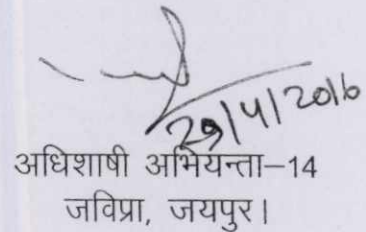 29/4/2016
अधिशाषी अभियन्ता–14
जविप्रा, जयपुर।